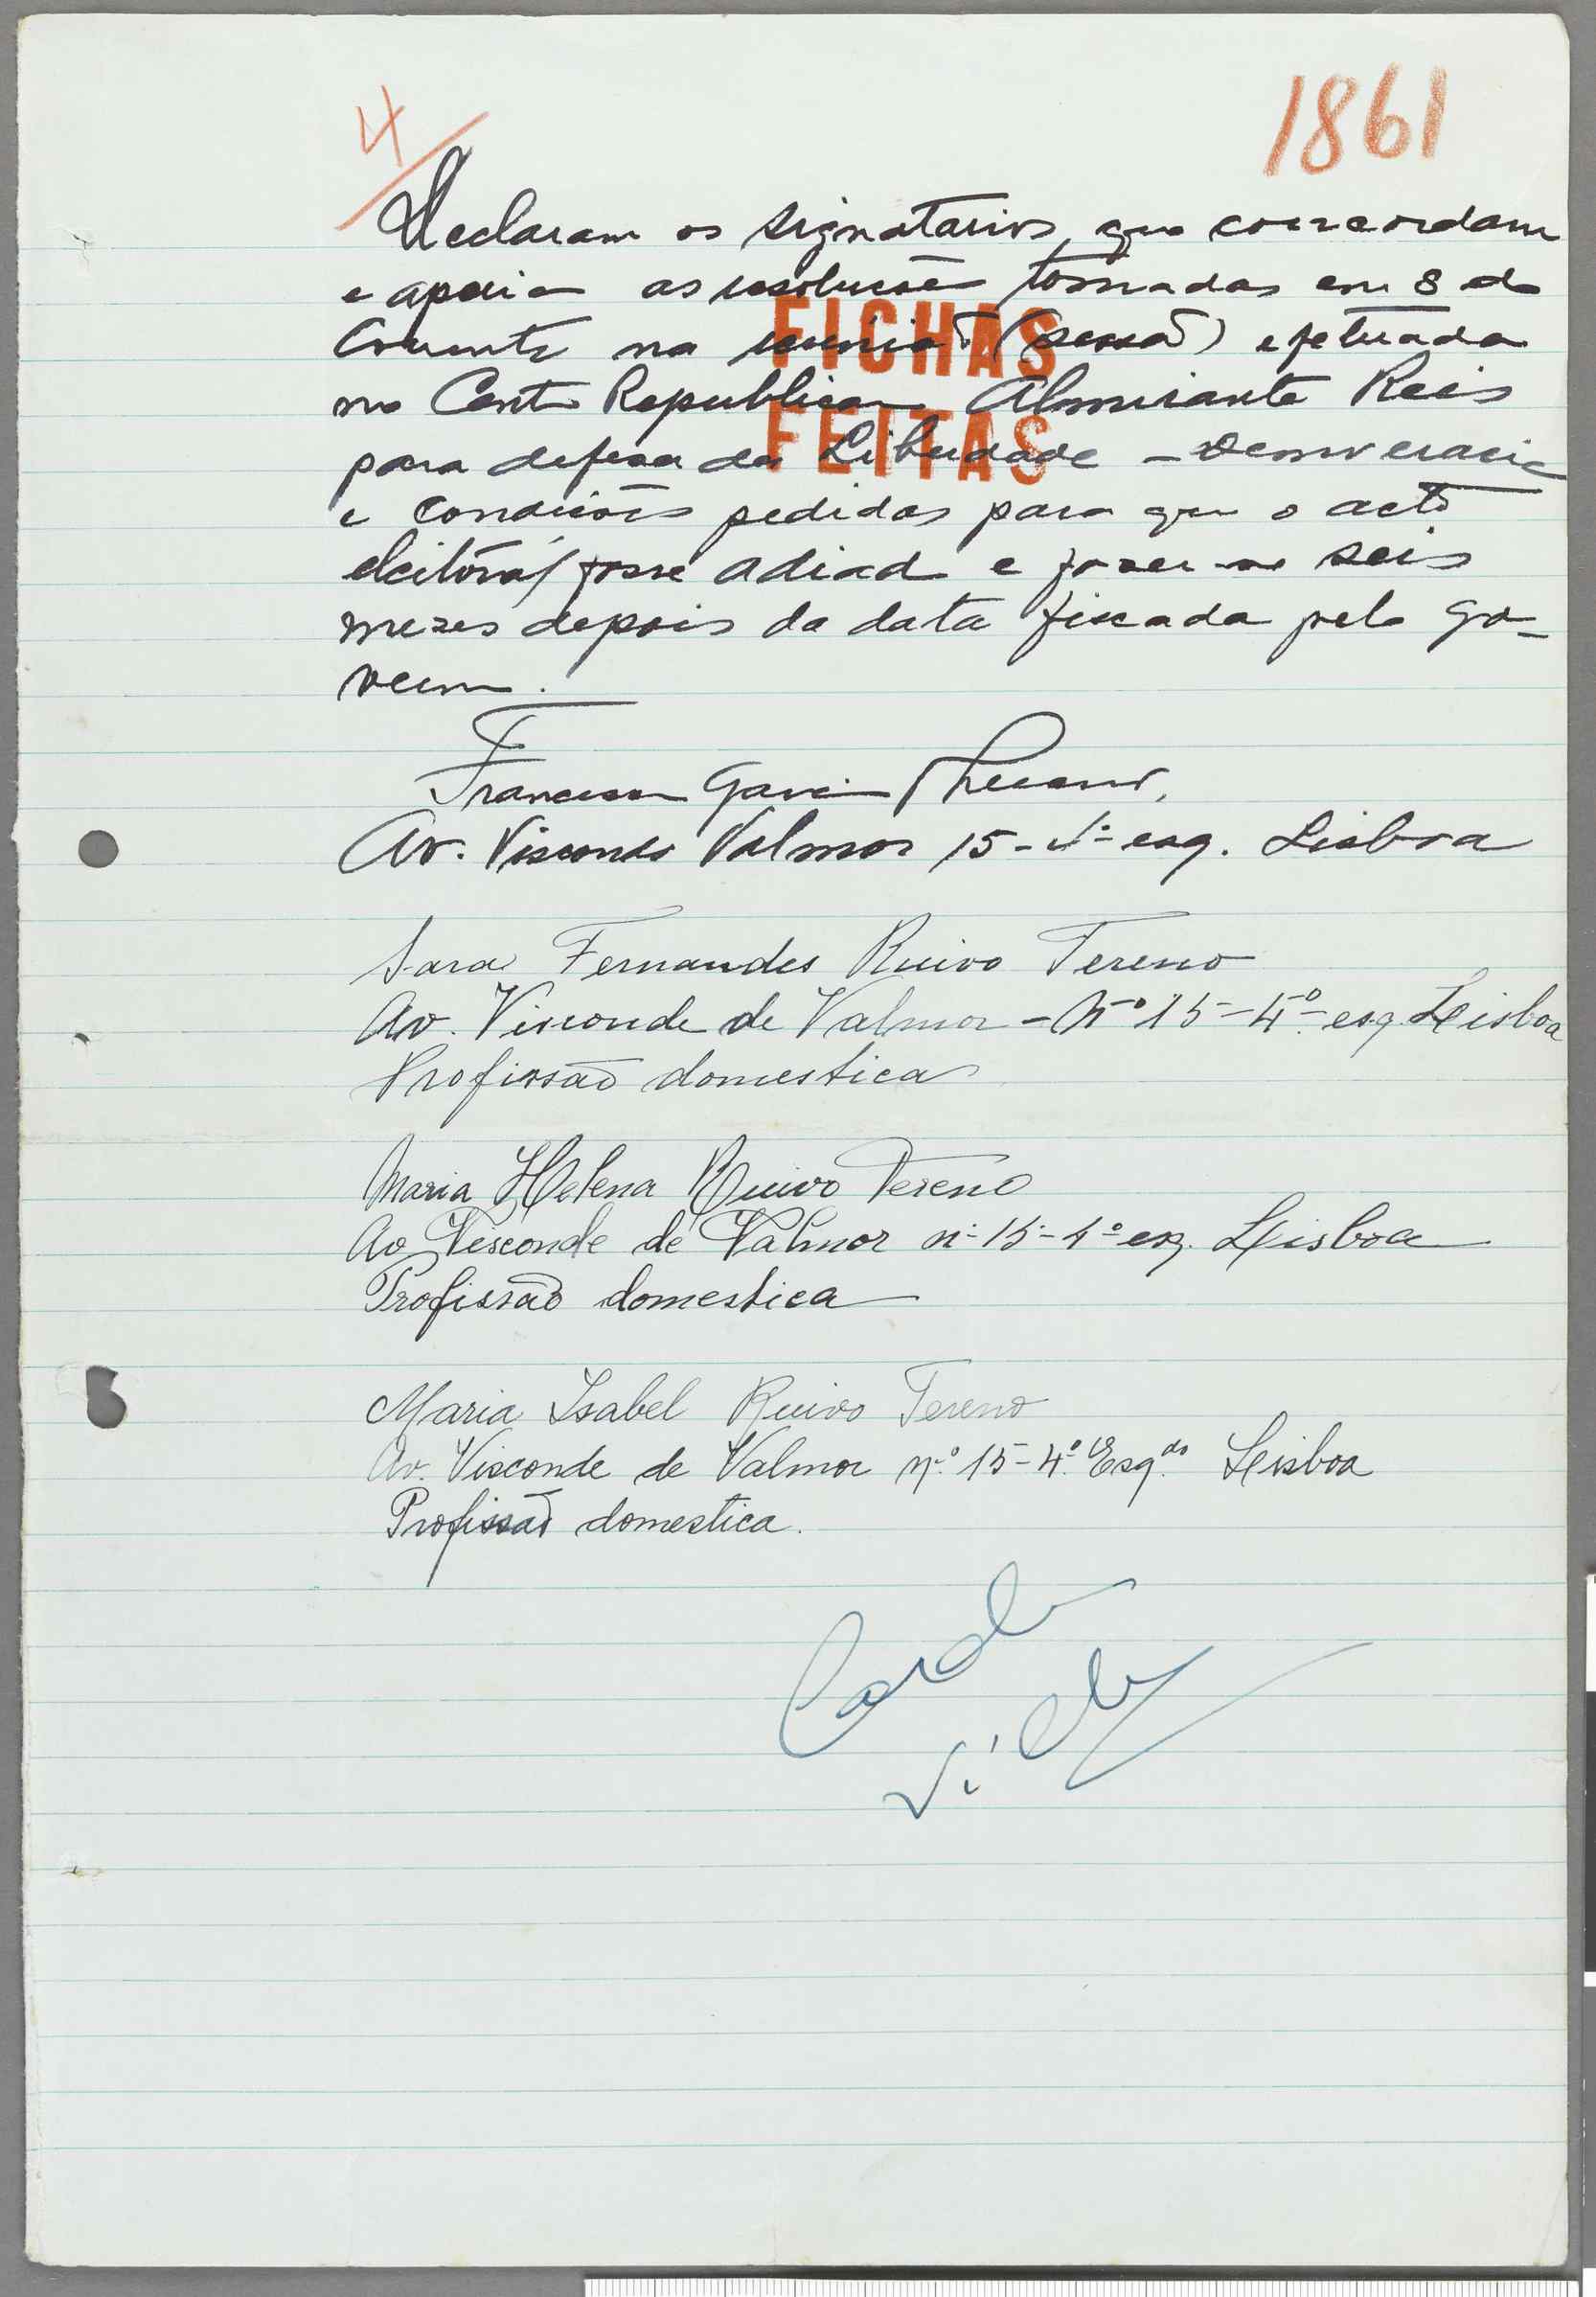 1861
4
Declaram os signatarios, que concordam
e apoia as resoluções tomadas em 8 do
Corrente na reunião (sessão) efetuada
no Centro Republicano Almirante Reis
para defesa da Liberdade - Democracia
e condições pedidas para que o acto
eleitoral fosse adiado e fazer-se seis
mezes depois da data fixada pelo Go-
verno.
FICHAS
FEITAS
Francisco Garcia
Av. Visconde Valmor 15-4º esq. Lisboa
Sara Fernandes Ruivo Tereno
Av. Visconde de Valmor - Nº 15-4º esq. Lisboa
Profissão domestica
Maria Helena Ruivo Tereno
Av Visconde de Valmor nº 15-4º esq. Lisboa
Profissão domestica
Maria Isabel Ruivo Tereno
Av. Visconde de Valmor nº 15-4º Esqdo Lisboa
Profissão domestica.